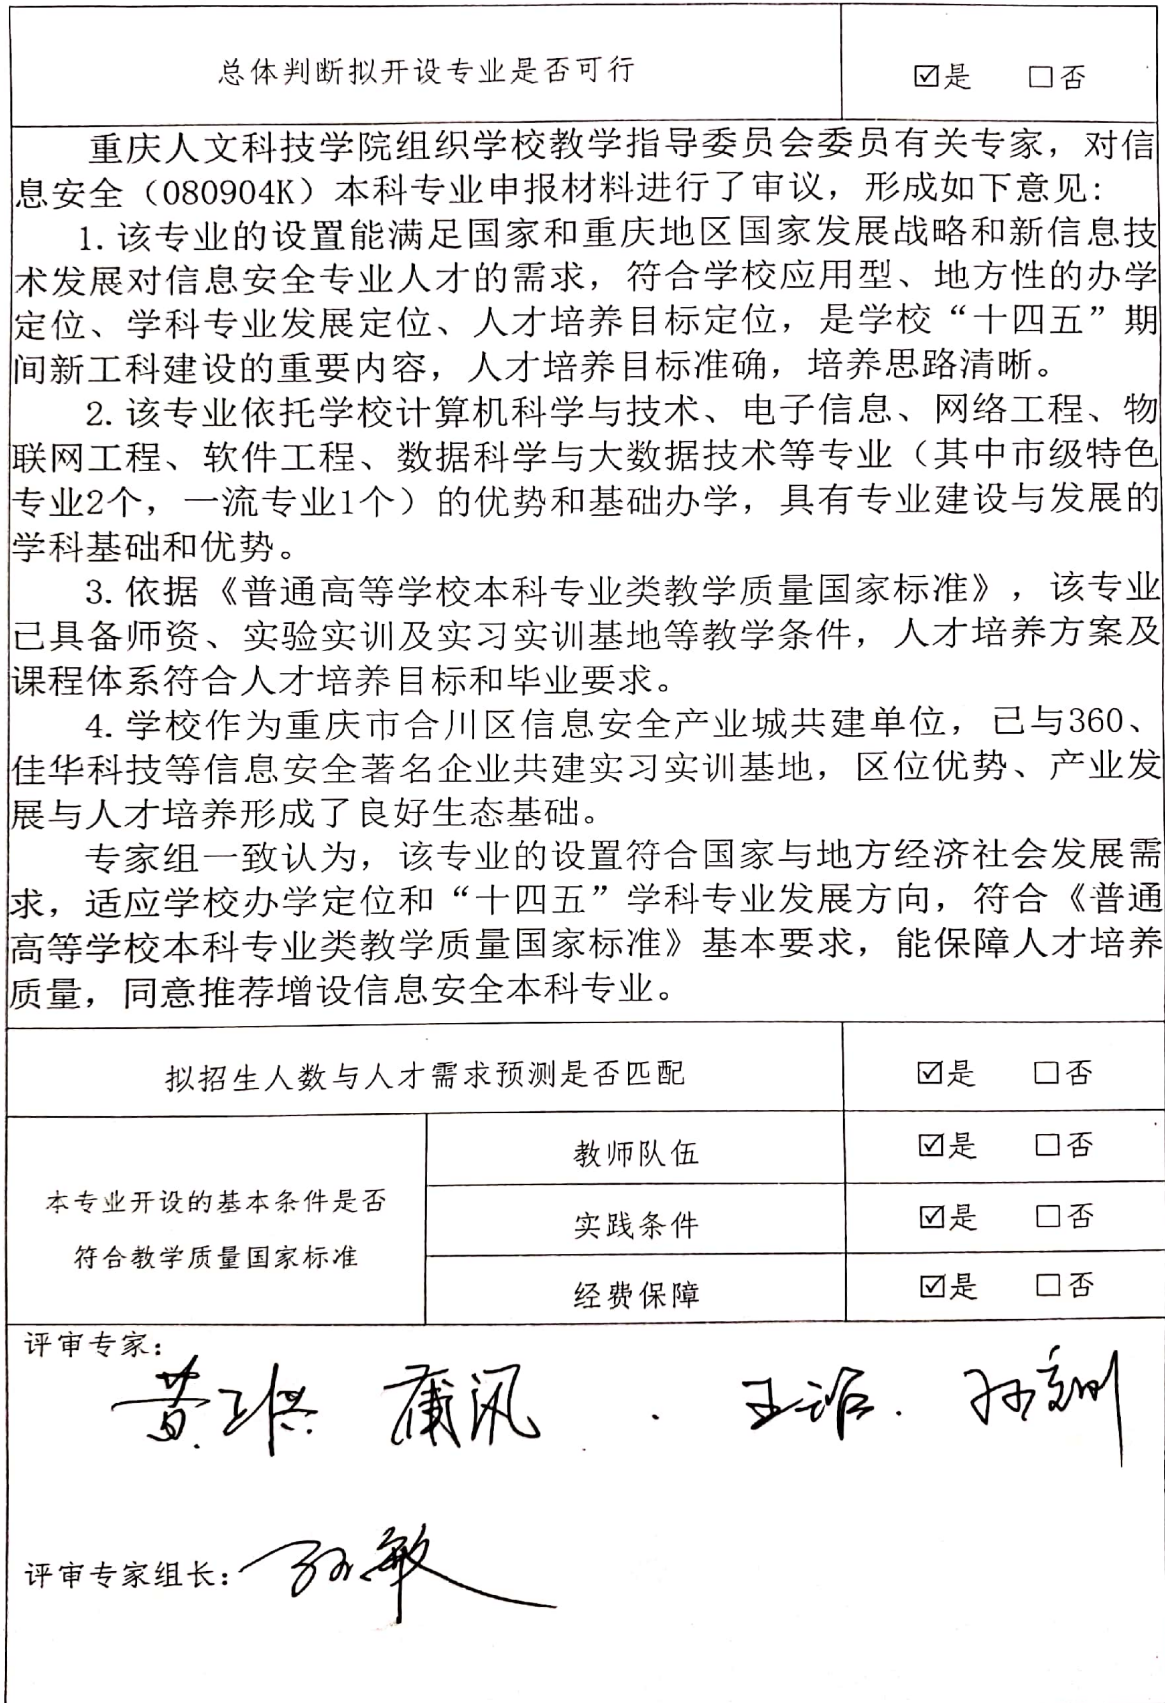 总体判断拟开设专业是否可行 ☑是 □否
重庆人文科技学院组织学校教学指导委员会委员有关专家，对信
息安全（080904K）本科专业申报材料进行了审议，形成如下意见：
1.该专业的设置能满足国家和重庆地区国家发展战略和新信息技
术发展对信息安全专业人才的需求，符合学校应用型、地方性的办学
定位、学科专业发展定位、人才培养目标定位，是学校“十四五”期
间新工科建设的重要内容，人才培养目标准确，培养思路清晰。
2.该专业依托学校计算机科学与技术、电子信息、网络工程、物
联网工程、软件工程、数据科学与大数据技术等专业（其中市级特色
专业2个，一流专业1个）的优势和基础办学，具有专业建设与发展的
学科基础和优势。
3.依据《普通高等学校本科专业类教学质量国家标准》，该专业
已具备师资、实验实训及实习实训基地等教学条件，人才培养方案及
课程体系符合人才培养目标和毕业要求。
4.学校作为重庆市合川区信息安全产业城共建单位，已与360、
佳华科技等信息安全著名企业共建实习实训基地，区位优势、产业发
展与人才培养形成了良好生态基础。
专家组一致认为，该专业的设置符合国家与地方经济社会发展需
求，适应学校办学定位和“十四五”学科专业发展方向，符合《普通
高等学校本科专业类教学质量国家标准》基本要求，能保障人才培养
质量，同意推荐增设信息安全本科专业。
拟招生人数与人才需求预测是否匹配 ☑是 □否
本专业开设的基本条件是否
符合教学质量国家标准
教师队伍 ☑是 □否
实践条件 ☑是 □否
经费保障 ☑是 □否
评审专家：
评审专家组长：孙敏